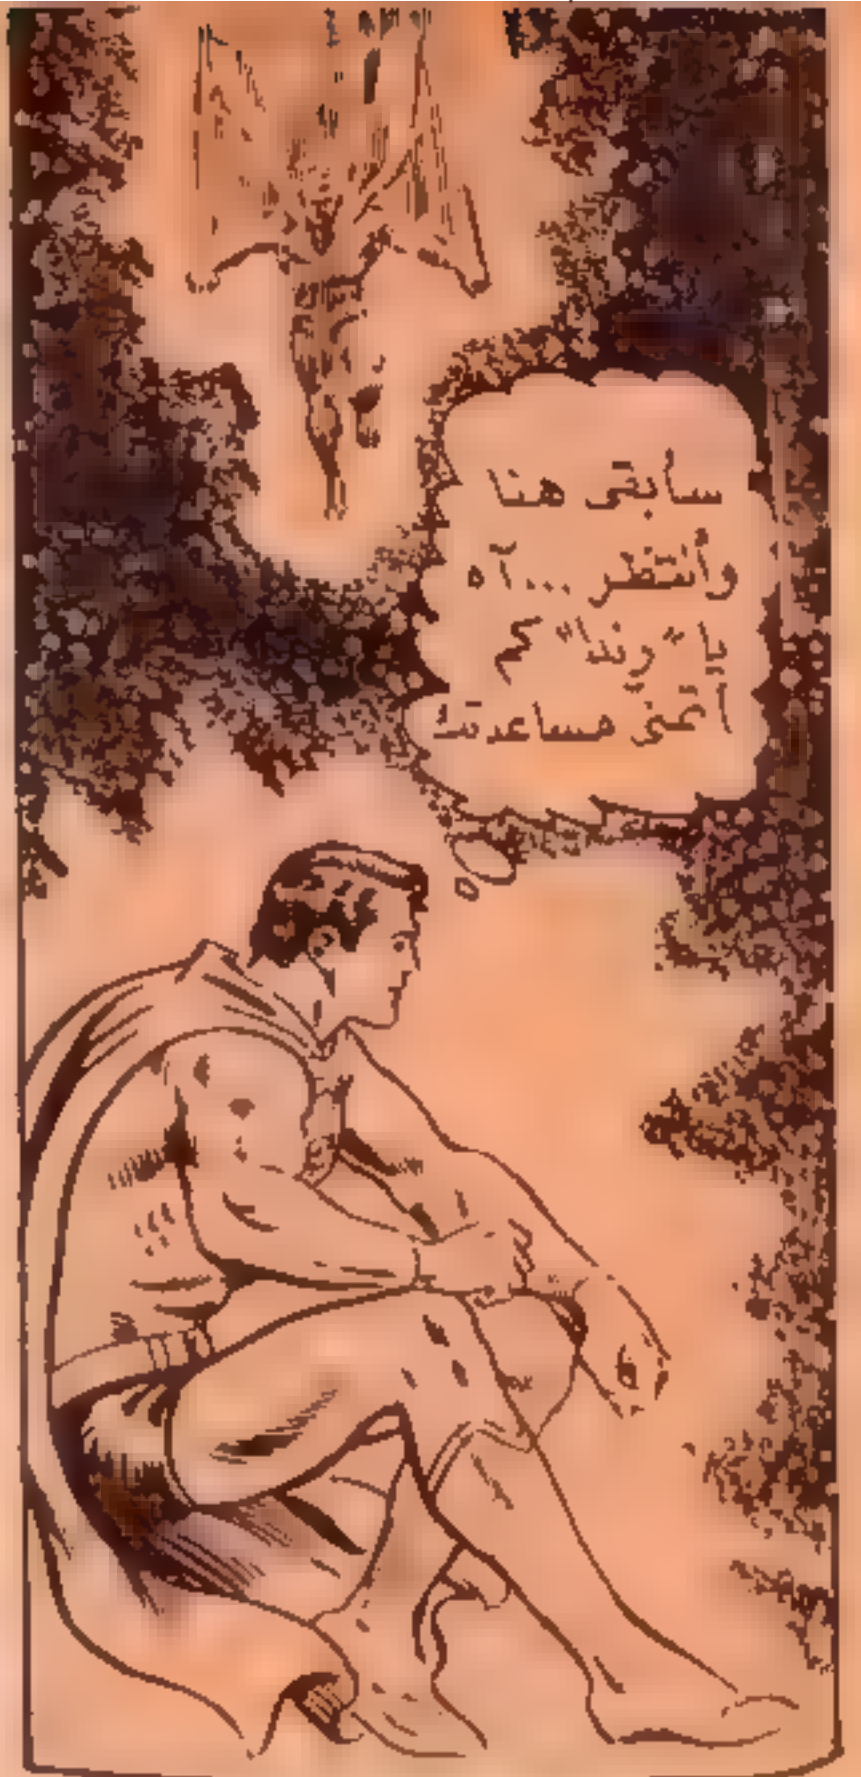 سأبقى هنا
وأنتظر ... آه
يا "رندا" كم
أتمنى مساعدتك